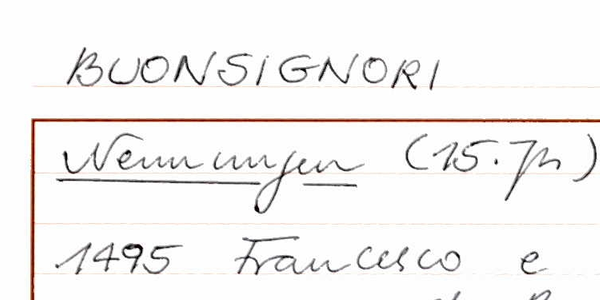 BUONSIGNORI
Nennungen (15. Jh)
1495 Francesco e